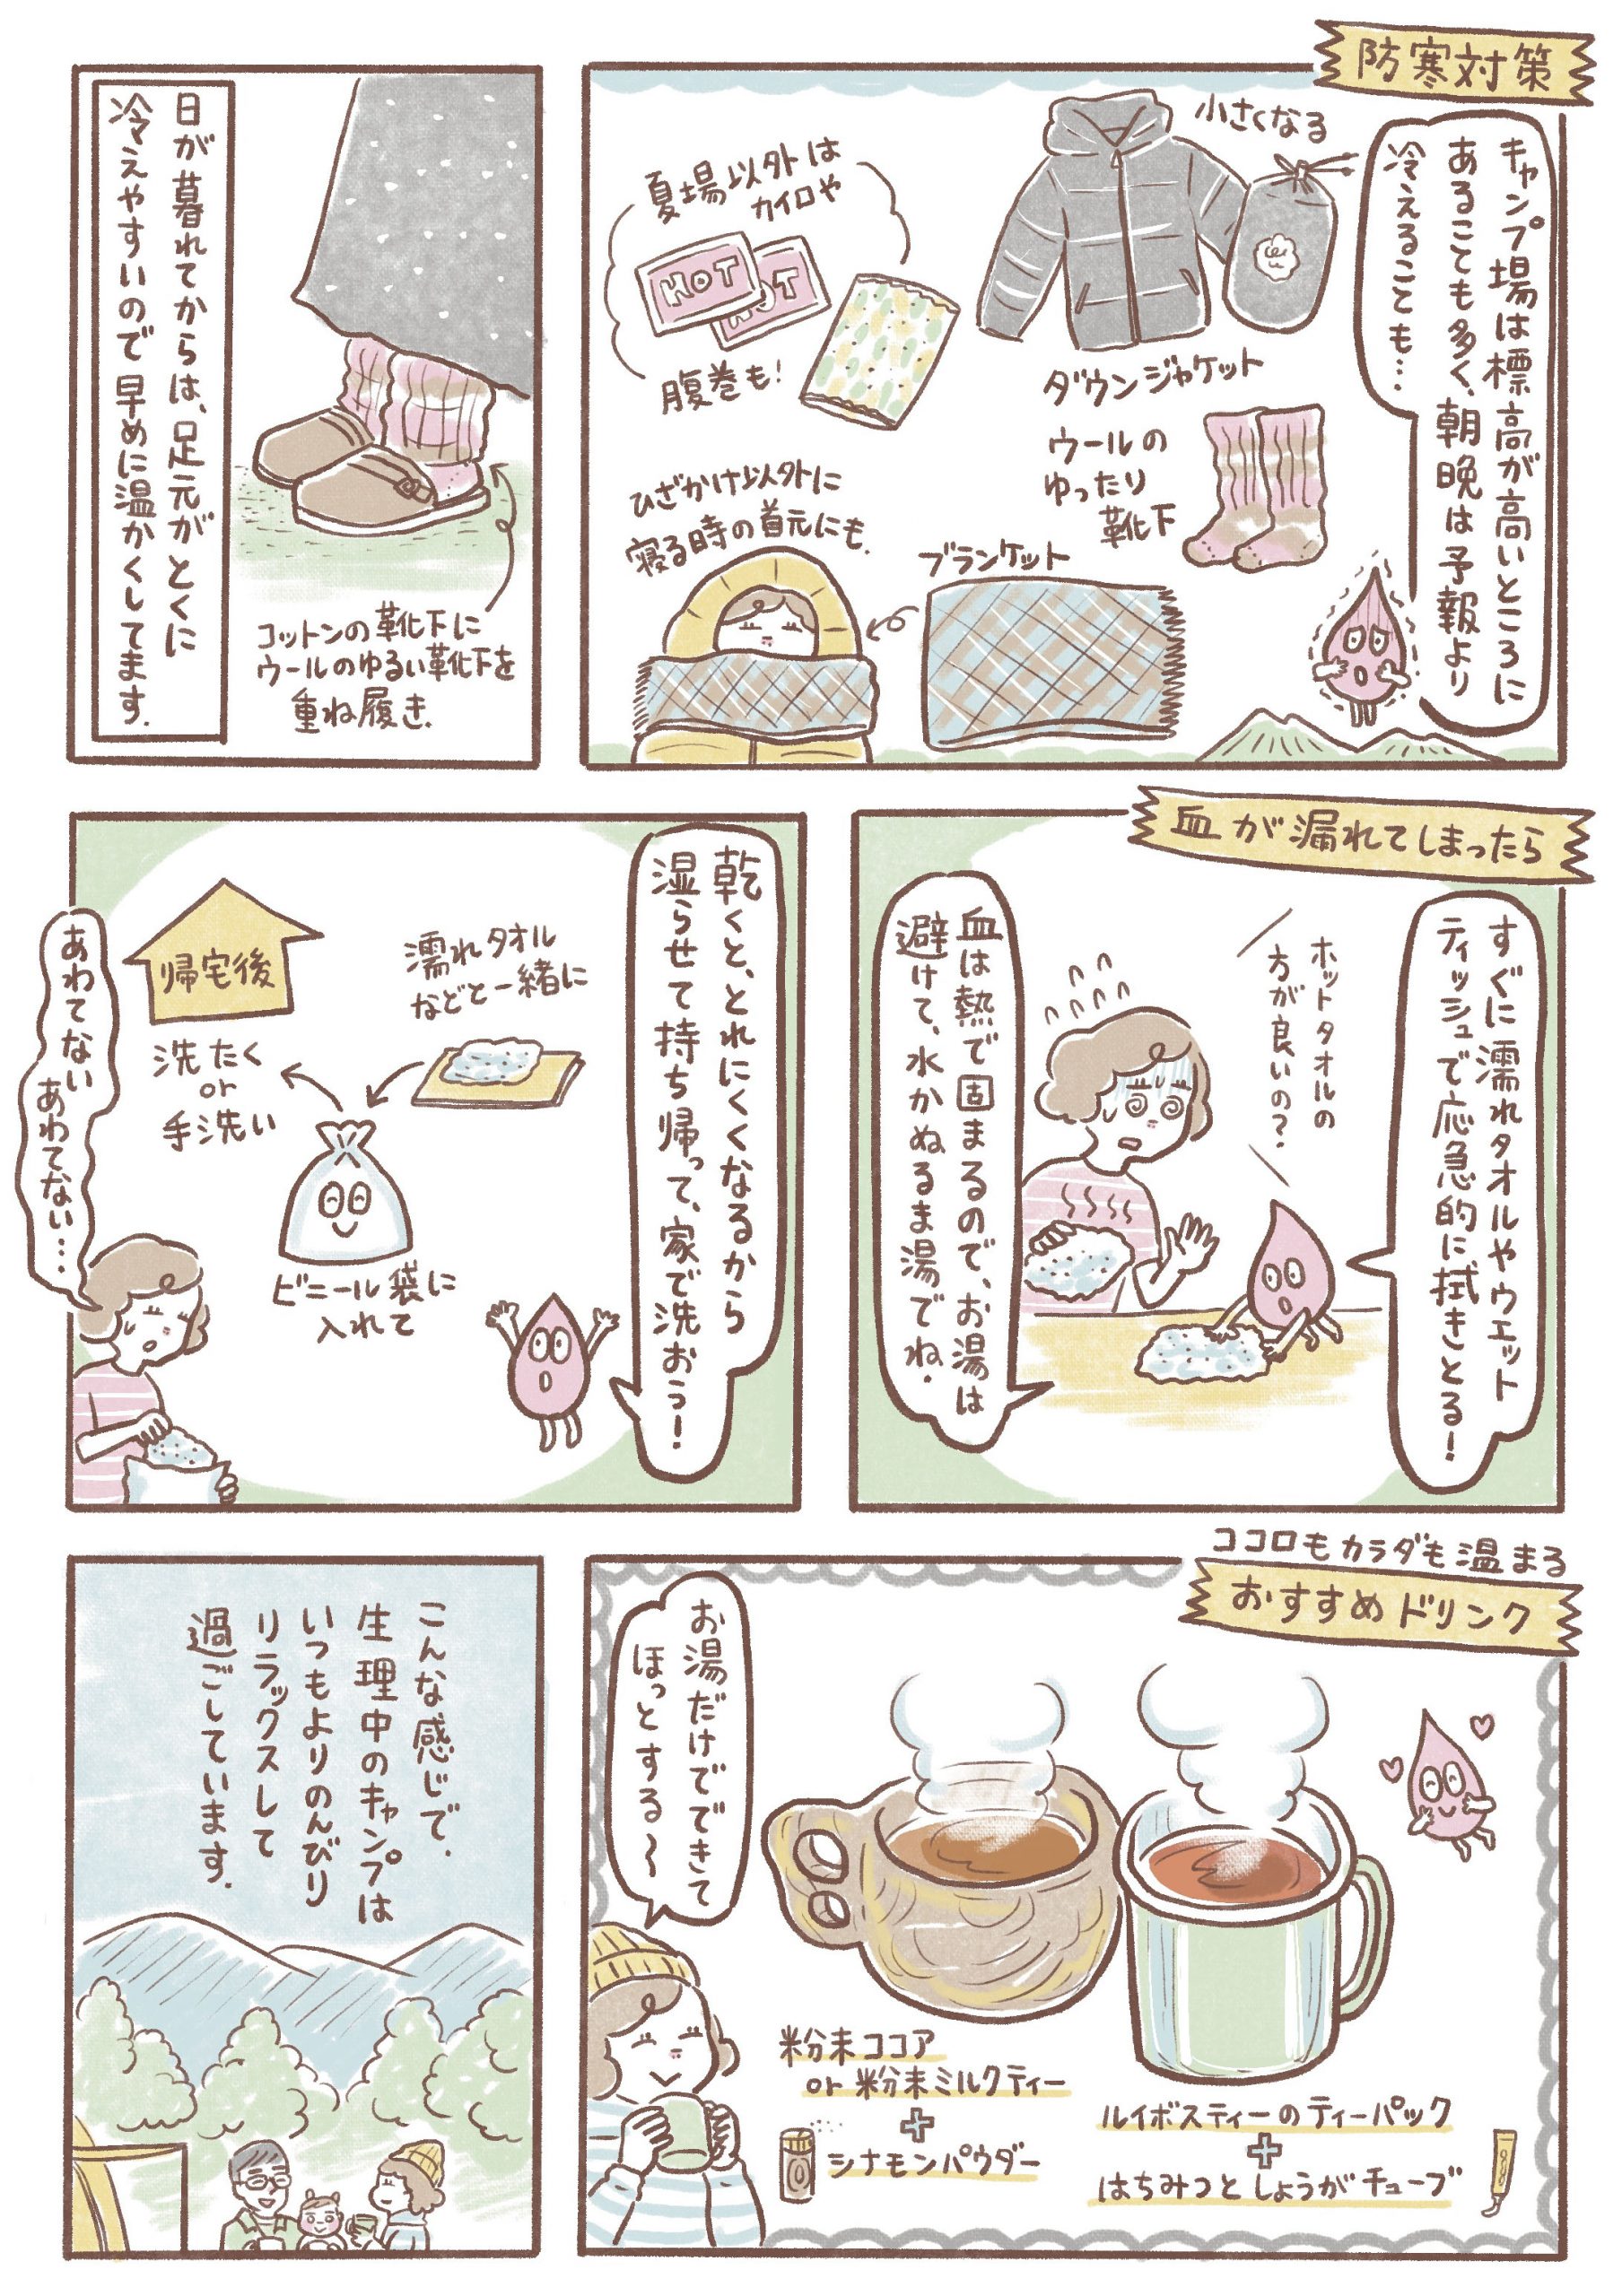 防寒対策
キャンプ場は標高が高いところに
あることも多く、朝晩は予報より
冷えることも…
小さくなる
ダウンジャケット
夏場以外は
カイロや
HOT
HOT
腹巻も!
ウールの
ゆったり
靴下
ブランケット
ひざかけ以外に
寝る時の首元にも.
日が暮れてからは、足元がとくに
冷えやすいので早めに温かくしてます.
コットンの靴下に
ウールのゆるい靴下を
重ね履き.
血が漏れてしまったら
すぐに濡れタオルやウエット
ティッシュで応急的に拭きとる!
ホットタオルの
方が良いの?
血は熱で固まるので、お湯は
避けて、水かぬるま湯でね.
乾くと、とれにくくなるから
湿らせて持ち帰って、家で洗おう!
濡れタオル
などと一緒に
ビニール袋に
入れて
帰宅後
洗たく
or
手洗い
あわてない
あわてない…
ココロもカラダも温まる
おすすめドリンク
お湯だけでできて
ほっとする〜
粉末ココア
or 粉末ミルクティー
+
シナモンパウダー
ルイボスティーのティーパック
+
はちみつとしょうがチューブ
こんな感じで、
生理中のキャンプは
いつもよりのんびり
リラックスして
過ごしています.